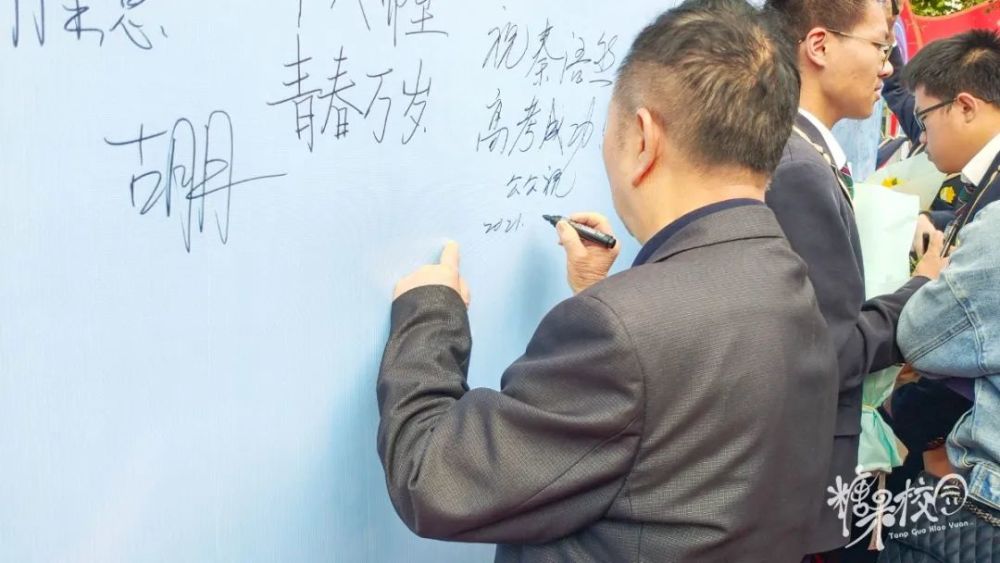 青春万岁
胡
祝秦语
高考成功
公公祝
2021.
糖果校园
Tang Guo Xiao Yuan